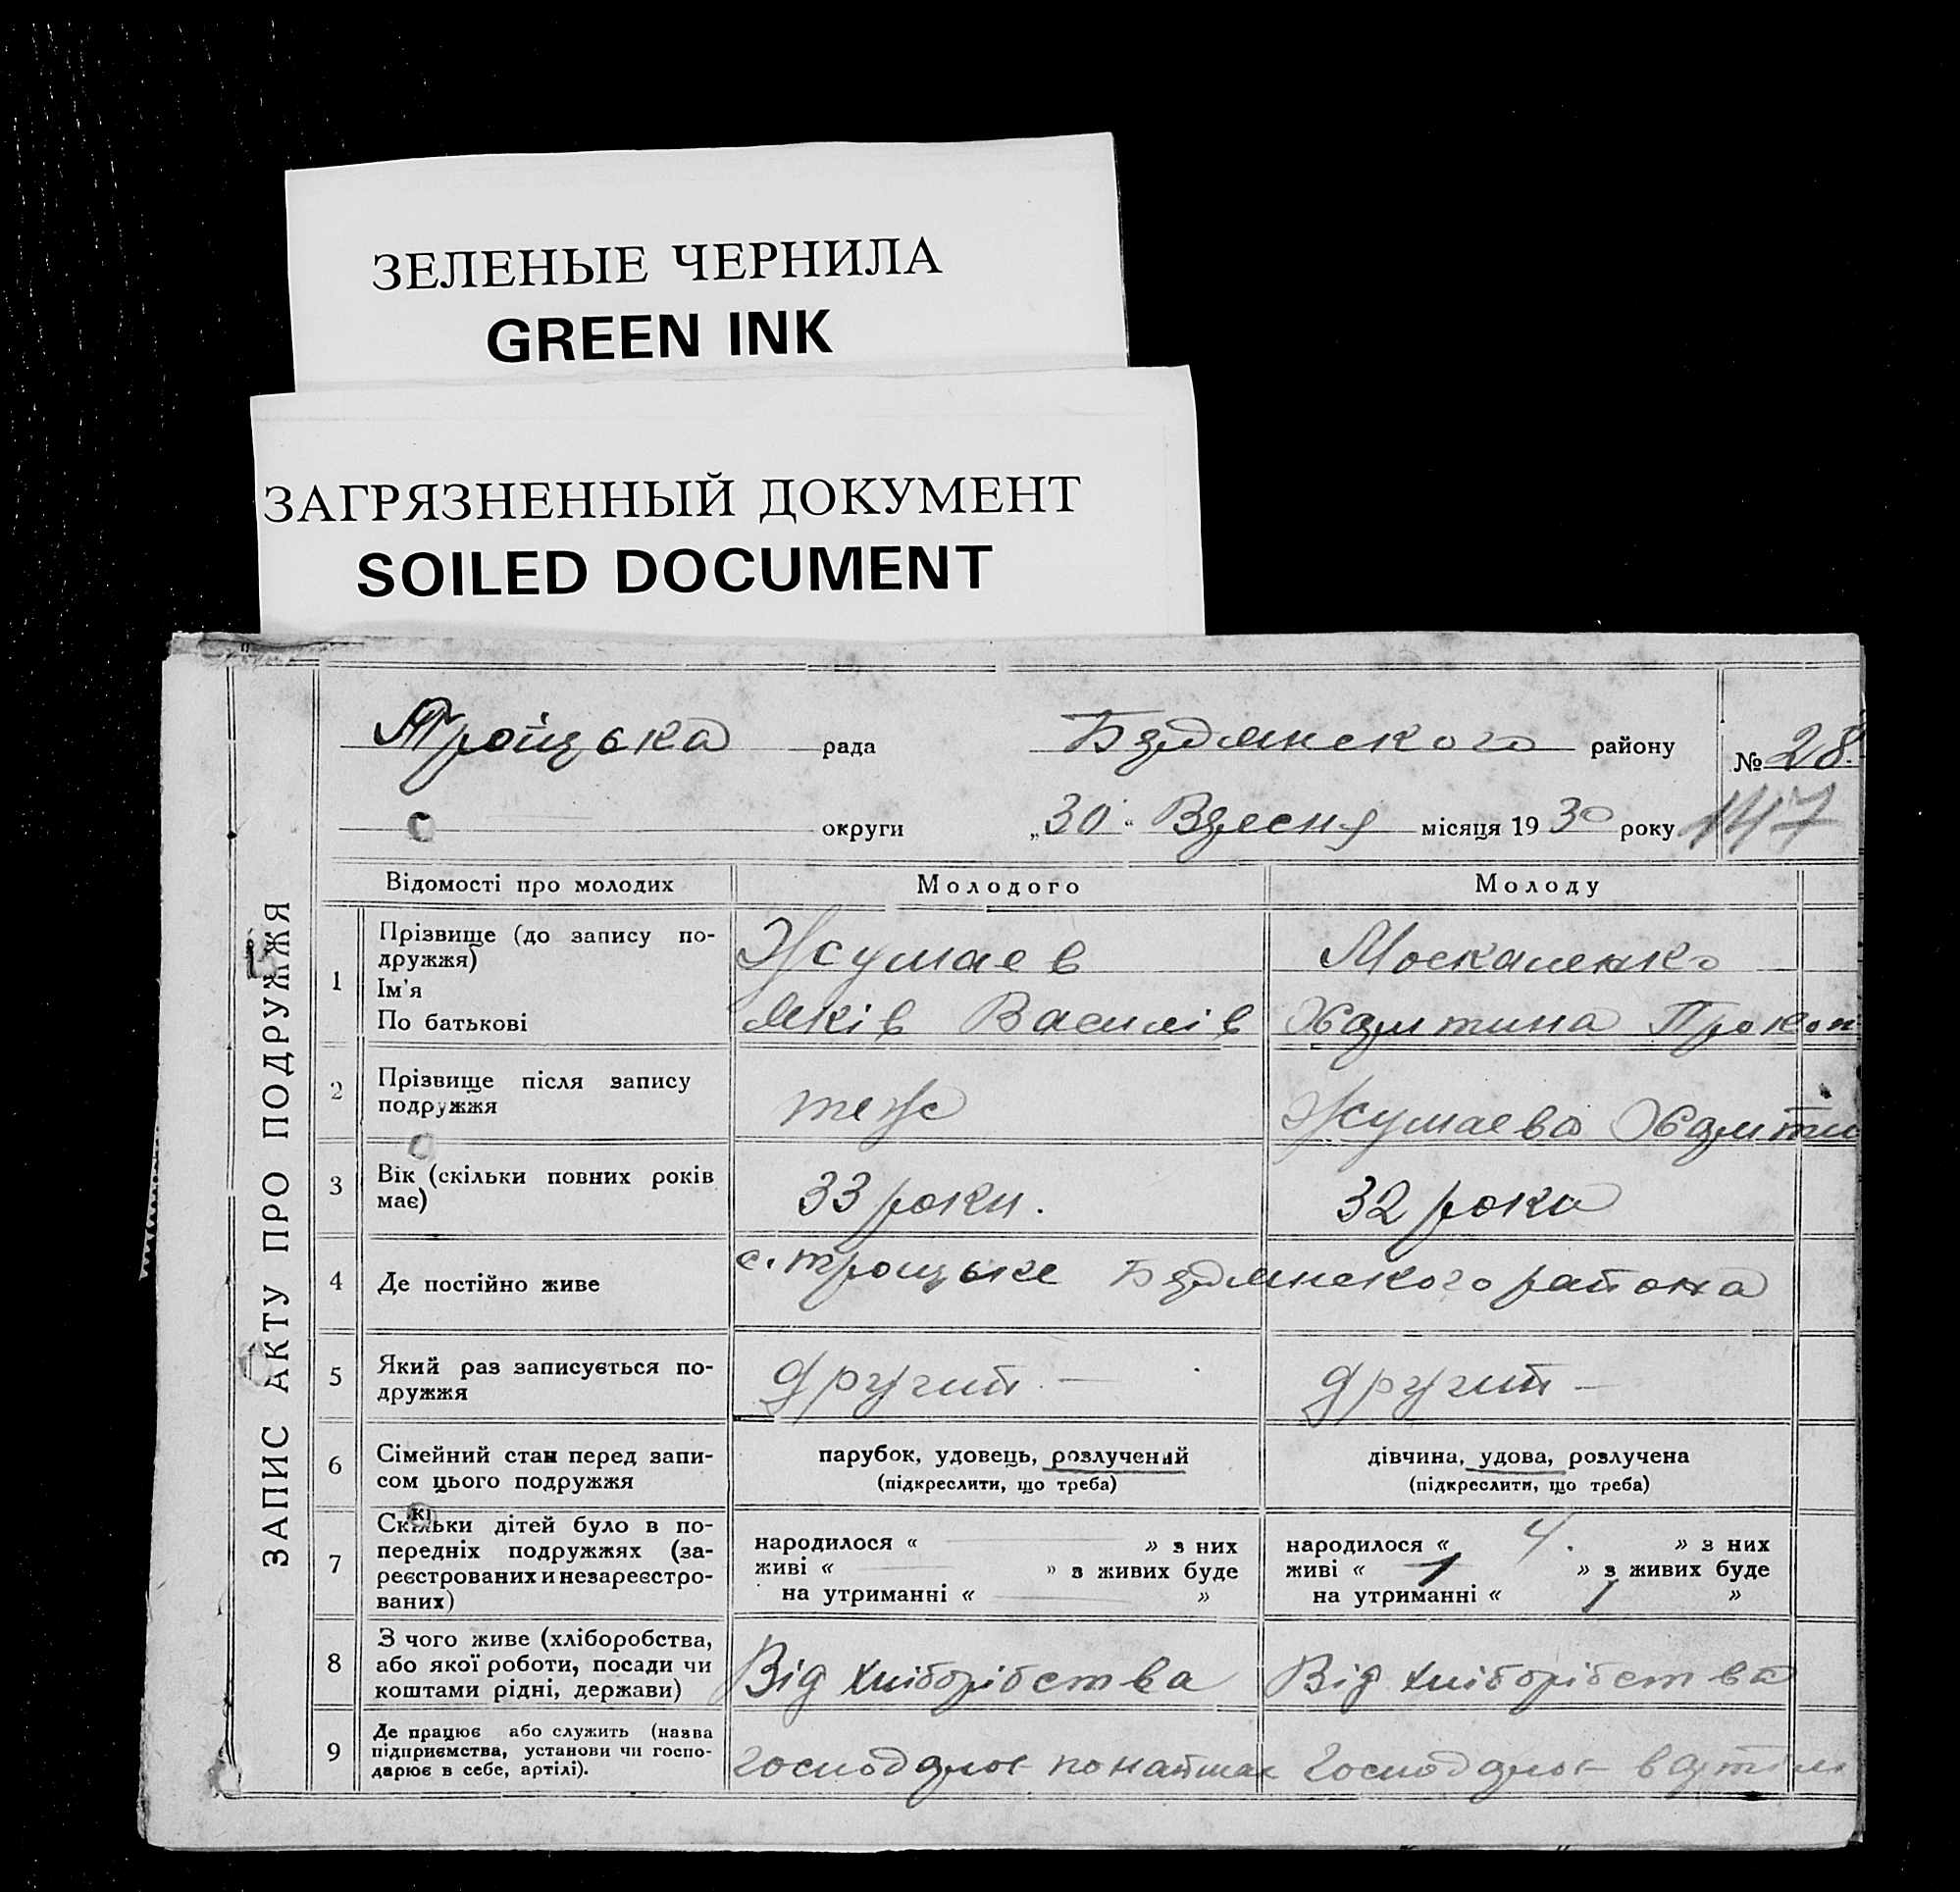 ЗЕЛЕНЫЕ ЧЕРНИЛА
GREEN INK
ЗАГРЯЗНЕННЫЙ ДОКУМЕНТ
SOILED DOCUMENT
ЗАПИС АКТУ ПРО ПОДРУЖЖЯ
Троїцька рада района Будянского району № 28.
округи „30“ Вресня місяця 1930 року 147
Відомості про молодих Молодого Молоду
1 Прізвище (до запису по-
дружжя) Жумаев Москаленко
Ім'я
По батькові Яків Василів Харитина Прокоп
2 Прізвище після запису
подружжя теж Жумаева Харити
3 Вік (скільки повних років
має) 33 роки. 32 роки
4 Де постійно живе с. Троицьке района
5 Який раз записується по-
дружжя другий — другий —
6 Сімейний стан перед запи-
сом цього подружжя
парубок, удовець, розлучений дівчина, удова, розлучена
(підкреслити, що треба) (підкреслити, що треба)
7 Скільки дітей було в по-
передніх подружжях (за-
реєстрованих и незареєстро-
ваних)
народилося « » з них народилося « 4. » з них
живі « » з живих буде живі « 1 » з живих буде
на утриманні « » на утриманні « 1 »
8 З чого живе (хліборобства,
або якої роботи, посади чи
коштами рідні, держави)
Від хліборібства Від хліборібства
9 Де працює або служить (назва
підприємства, установи чи госпо-
дарює в себе, артілі).